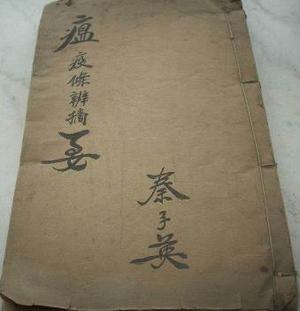 瘟疫條辨摘要
秦子英